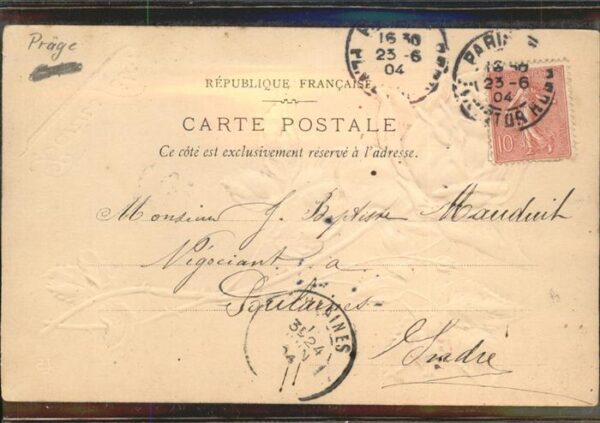 Präge
16 30
23 -6
04
PARIS
16 30
23 -6
04
RÉPUBLIQUE FRANÇAISE
10
CARTE POSTALE
Ce côté est exclusivement réservé à l'adresse.
Monsieur J. Baptiste Mauduit
Négociant a
Indre